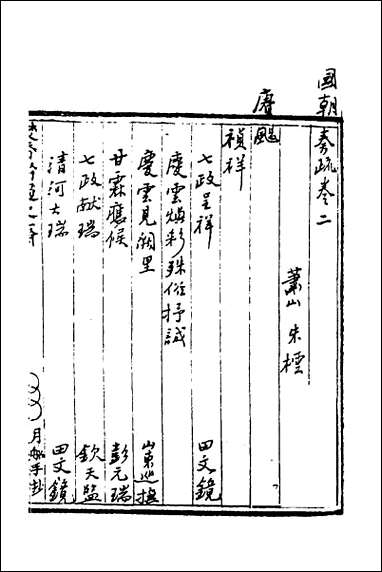 國朝
奏疏卷二
蕭山朱橒
賡颺
禎祥
七政呈祥 田文鏡
慶雲煥彩殊俗抒誠
慶雲見闕里 山東巡撫
甘霖應候 彭元瑞
七政献瑞 欽天監
清河大瑞 田文鏡
月 手抄